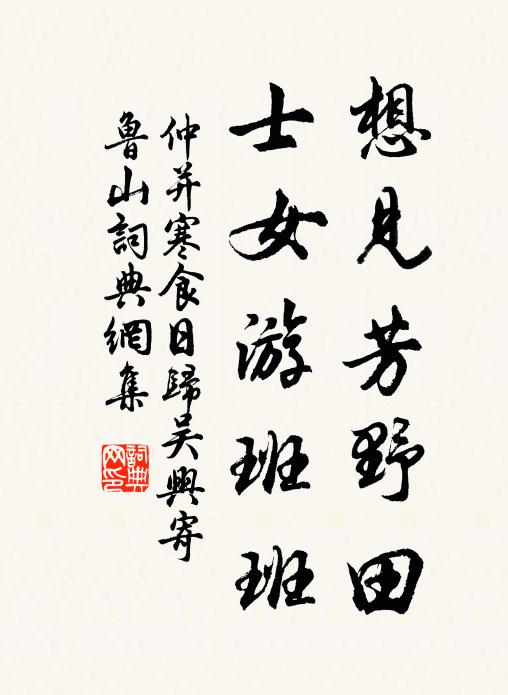 想見芳野田
士女游班班
仲并寒食日歸吴興寄
魯山詞典網集
詞典
网印